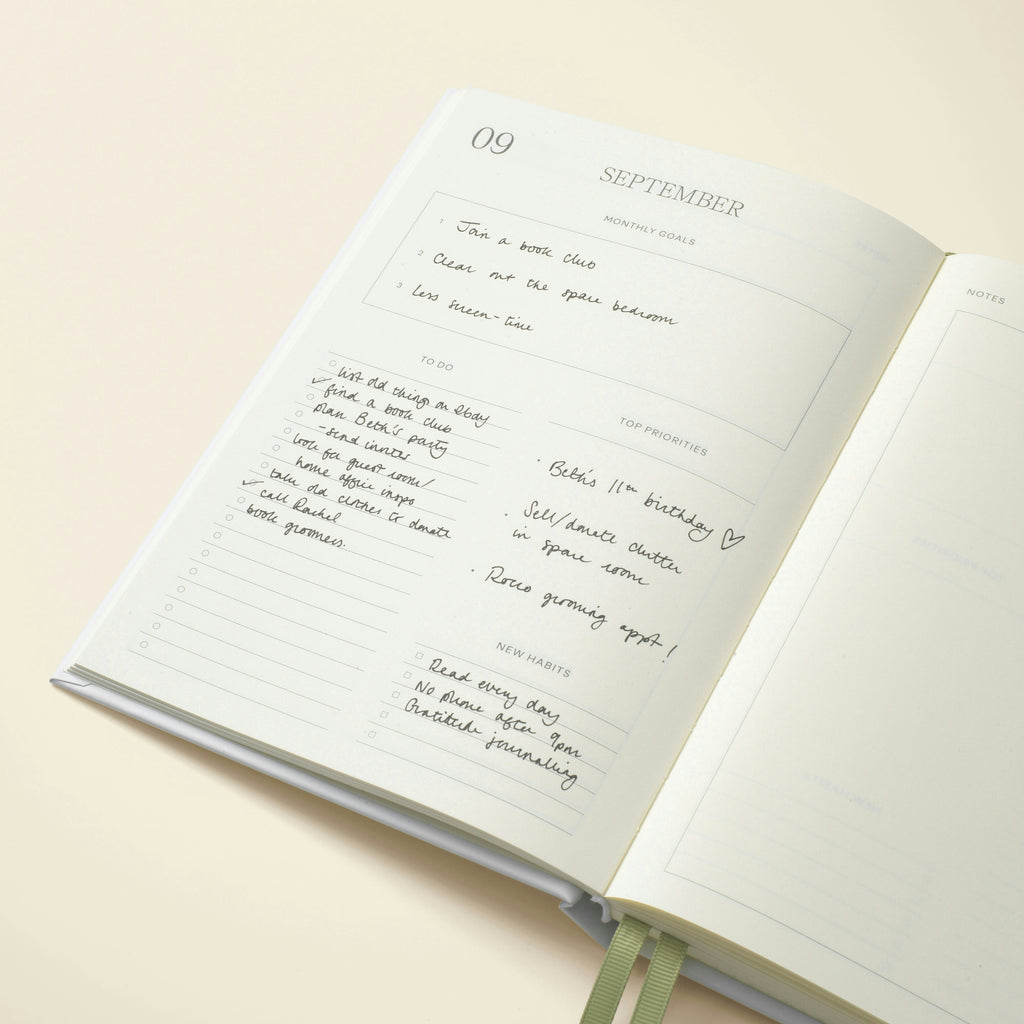 09
SEPTEMBER
MONTHLY GOALS
1 Join a book club
2 Clear out the spare bedroom
3 Less screen-time
TO DO
list old things on Ebay
✓ find a book club
plan Beth's party
-send invites
look for guest room/
home office inspo
take old clothes to donate
✓ call Rachel
book groomers.
TOP PRIORITIES
· Beth's 11th birthday ♡
· Sell/donate clutter
in spare room
· Rocco grooming appt!
NEW HABITS
Read every day
No phone after 9pm
Gratitude journalling
NOTES